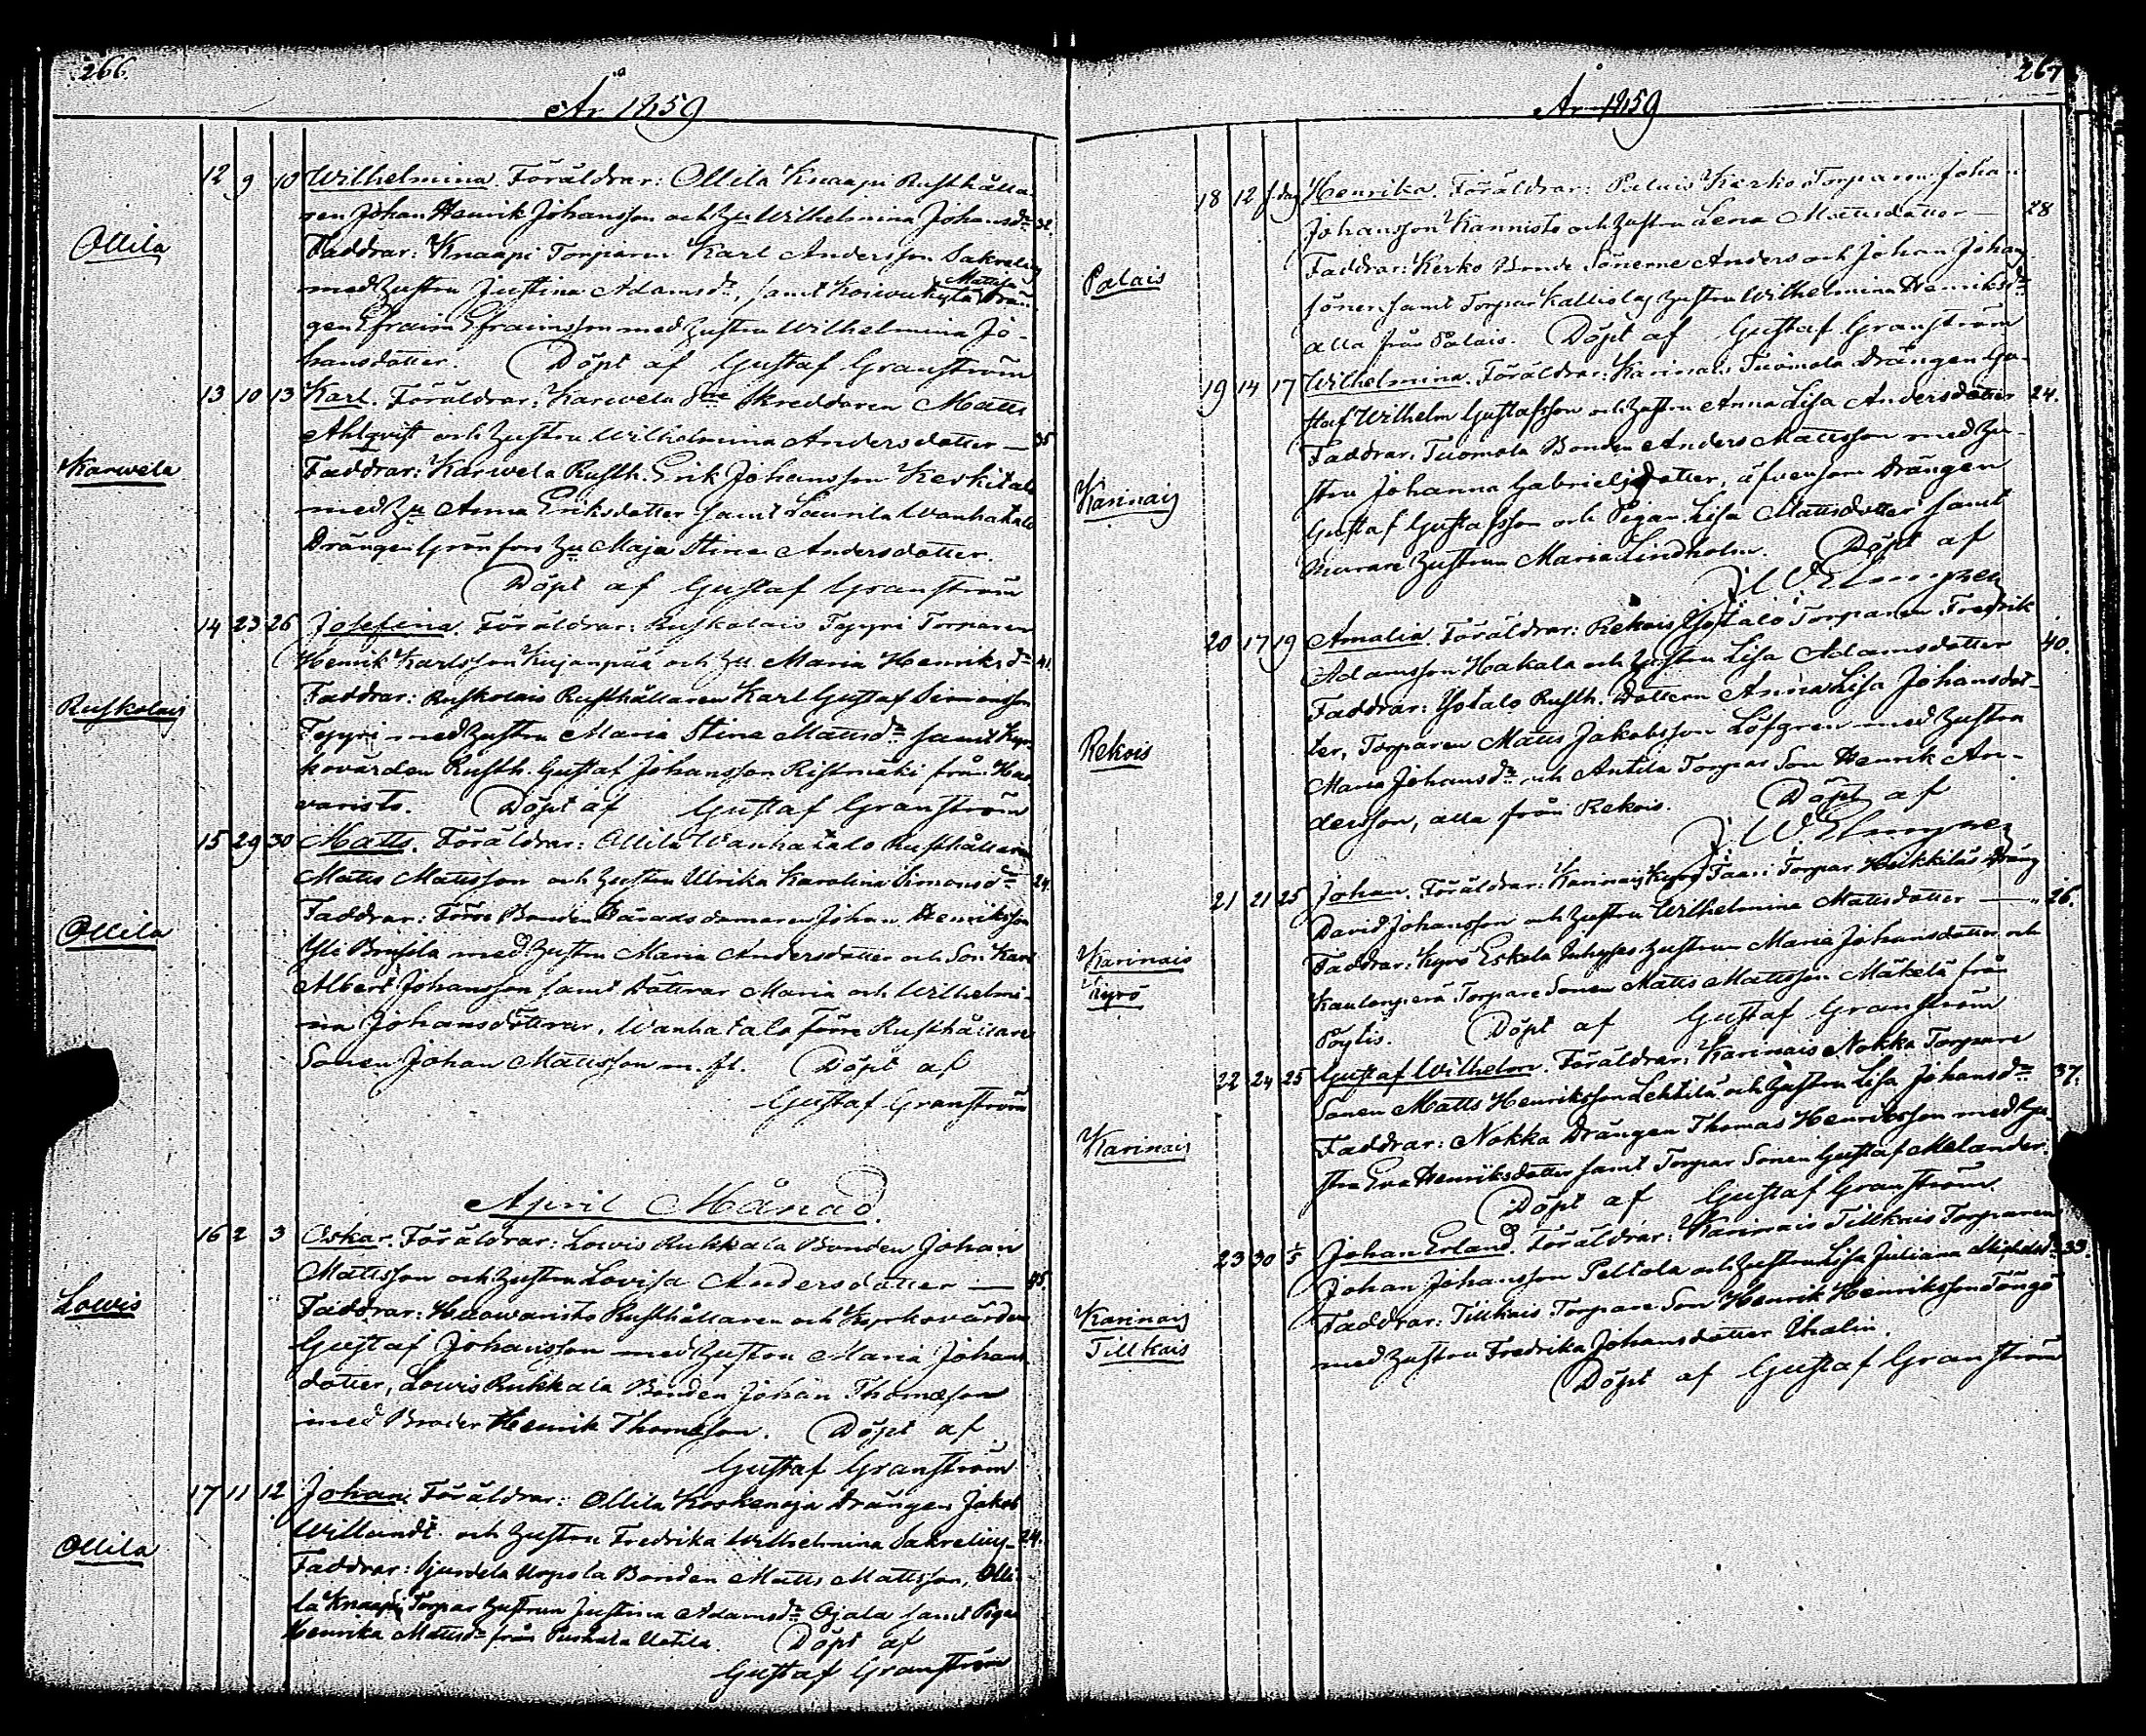 266.
År 1859
Ollila
12 9 10 Wilhelmina. Föräldrar: Ollila Knaapi Rusthålla-
ren Johan Henrik Johansson och Hu Wilhelmina Johansdr 32.
Faddrar: Knaapi Torparen Karl Andersson Sakrelius
med Hustru Justina Adamsdr, samt Koivukylä Mattila Drän-
gen Efraim Efraimsson med Hustru Wilhelmina Jo-
hansdotter. Döpt af Gustaf Granström
Karwela
13 10 13 Karl. Föräldrar: Karwela Skreddaren Matts
Ahlqvist och Hustru Wilhelmina Andersdotter — 35
Faddrar: Karwela Rusth. Erik Johansson Keskitalo
med Hu Anna Eriksdotter samt Laurila Wanhatalo
Drängen Grönfors Hu Maja Stina Andersdotter.
Döpt af Gustaf Granström
Ruskolais
14 23 26 Josefina. Föräldrar: Ruskolais Tepyri Torparen
Henrik Karlsson Kujanpää och Hu Maria Henriksdr 41.
Faddrar: Ruskolais Rusthållaren Karl Gustaf Simonsson
Tepyri med Hustru Maria Stina Mattsdr samt Kyr-
kovärden Rusth. Gustaf Johansson Ristimäki från Haa
varisto. Döpt af Gustaf Granström
Ollila
15 29 30 Matts. Föräldrar: Ollila Wanhatalo Rusthållaren
Matts Mattsson och Hustru Ulrika Karolina Simonsdr 24.
Faddrar: Förre Bonden Häradsdomaren Johan Henriksson
Yli Brusila med Hustru Maria Andersdotter och Son Karl
Albert Johansson samt Döttrar Maria och Wilhelmi-
na Johansdöttrar, Wanhatalo förre Rusthållare
Sonen Johan Mattsson m. fl. Döpt af
Gustaf Granström
April Månad.
Lowis
16 2 3 Oskar. Föräldrar: Lowis Rukkala Bonden Johan
Mattsson och Hustru Lovisa Andersdotter — 45.
Faddrar: Haavaristo Rusthållaren och Kyrkovärden
Gustaf Johansson med Hustru Maria Johans-
dotter, Lowis Rukkala Bonden Johan Thomasson
med Broder Henrik Thomasson. Döpt af
Gustaf Granström
Ollila
17 11 12 Johan. Föräldrar: Ollila Koskenoja Drängen Jakob
Willandt och Hustru Fredrika Wilhelmina Sakrelius 24.
Faddrar: Bonden Matts Mattsson, Olli
la Knaapi Torpar Hustrun Justina Adamsdr Ojala samt Pigan
Henrika Mattsdr från Puskala Uotila. Döpt af
Gustaf Granström
267
År 1859
Palais
18 12 s. dag Henrika. Föräldrar: Palais Kerko Torparen Johan
Johansson Kannisto och Hustru Lena Mattsdotter — 28
Faddrar: Kerko Bonde Sönerne Anders och Johan Johans-
söner samt Torpar Kallio Hustru Wilhelmina Henriksdr
alla från Palais. Döpt af Gustaf Granström
Karinais
19 14 17 Wilhelmina. Föräldrar: Karinais Tuomola Drängen Gu-
staf Wilhelm Gustafsson och Hustru Anna Lisa Andersdotter 24.
Faddrar: Tuomola Bonden Anders Mattsson med Hu-
stru Johanna Gabrielsdotter, äfvensom Drängen
Gustaf Gustafsson och Pigan Lisa Mattsdotter samt
Murare Hustrun Maria Lindholm. Döpt af
Rekois
20 17 19 Amalia. Föräldrar: Rekois Yötalo Torparen Fredrik
Adamsson Hakala och Hustru Lisa Adamsdotter 40.
Faddrar: Yötalo Rusth. Dottern Anna Lisa Johansdot-
ter, Torparen Matts Jakobsson Löfgren med Hustru
Maria Johansdr och Antila Torpar Son Henrik An-
dersson, alla från Rekois. Döpt af
Karinais
Kyrö
21 21 25 Johan. Föräldrar: Karinais Kyrö Torpar Heikkilä Dräng
David Johansson och Hustru Wilhelmina Mattsdotter — 26.
Faddrar: Kyrö Eskola Inhyses Hustrun Maria Johansdotter och
Kaulanperä Torpare Sonen Matts Mattsson Mäkelä från
Pöytis. Döpt af Gustaf Granström
Karinais
22 24 25 Gustaf Wilhelm. Föräldrar: Karinais Nokka Torpare
Sonen Matts Henriksson Lehtilä och Hustru Lisa Johansdr 37.
Faddrar: Nokka Drängen Thomas Henriksson med Hu-
stru Eva Henriksdotter samt Torpar Sonen Gustaf Melander.
Döpt af Gustaf Granström.
Karinais
Tillkais
23 30 1/5 Johan Erland. Föräldrar: Karinais Tillkais Torparen
Johan Johansson Peltola och Hustru Lisa Juliana Michelsdr 33.
Faddrar: Tillkais Torpare Son Henrik Henriksson
med Hustru Fredrika Johansdotter Thalin.
Döpt af Gustaf Granström